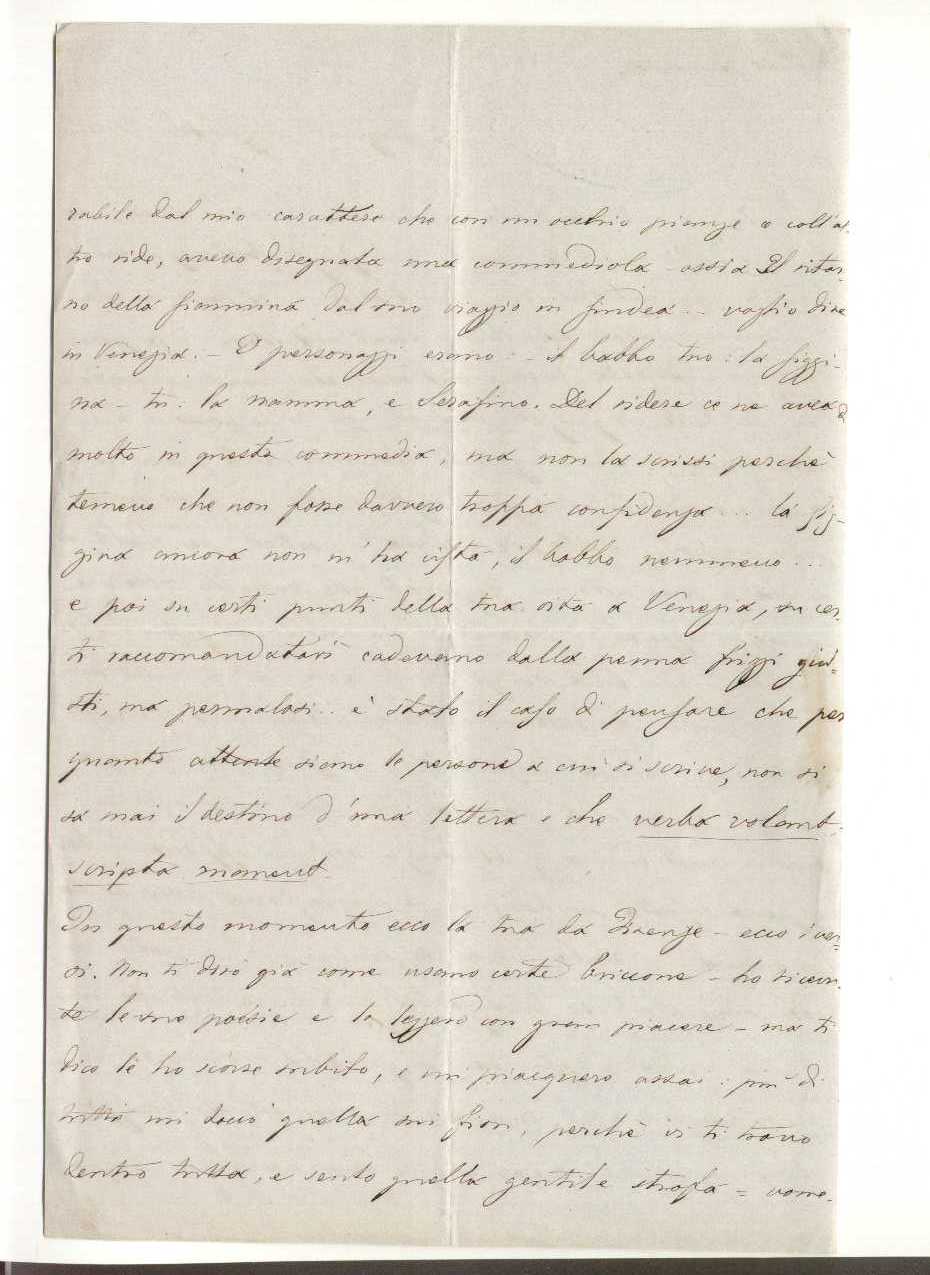 rabile dal mio carattere che con un occhio piange e coll'al-
tro ride, avevo disegnata una commediola ossia Il ritor-
no della Giannina dal suo viaggio in .. voglio dire
in Venezia. – I personaggi erano: – il babbo tuo: la Giggi-
na – tu: la mamma, e Serafino. Del ridere ce ne avea
molto in questa commedia, ma non la scrissi perchè
temevo che non fosse davvero troppa confidenza ... la Gig-
gina ancora non m'ha vista, il babbo nemmeno ...
e poi su certi punti della tua vita a Venezia, su cer-
ti raccomandatari cadevano dalla penna frizzi giu-
sti, ma permalosi .. è stato il caso di pensare che per
quanto attente siano le persone a cui si scrive, non si
sa mai il destino d'una lettera e che verba volant
scripta manent.
In questo momento ecco la tua da Firenze – ecco i ver-
si. Non ti dirò già come usano certe briccone – ho ricevu-
te le sue poesie e le leggerò con gran piacere – ma ti
dico le ho scorse subito, e mi piacquero assai: più di
tutto mi toccò quella sui fiori, perchè vi ti trovo
dentro tutta, e sento quella gentile strofa =